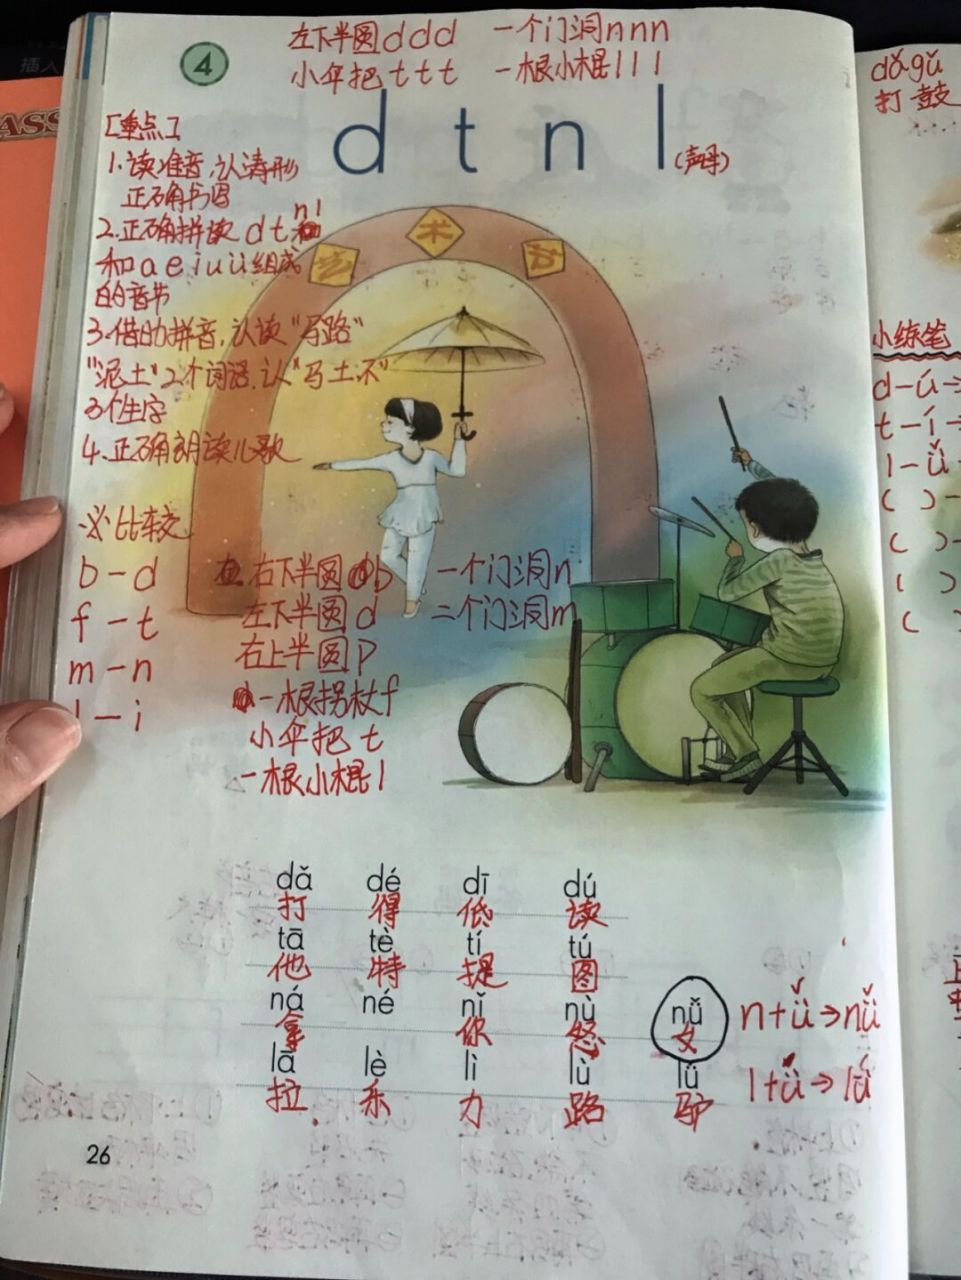 ④
左下半圆ddd 一个门洞nnn
小伞把ttt 一根小棍lll
d t n l (声母)
[重点]
1.读准音,认清形
正确书写
2.正确拼读 d t n l
和 a e i u ü 组成
的音节
3.借助拼音,认读"马路"
"泥土"2个词语.认"马土不"
3个生字
4.正确朗读儿歌
艺术节
※比较
b-d
f-t
m-n
l-i
右下半圆b 一个门洞n
左下半圆d 二个门洞m
右上半圆p
一根拐杖f
小伞把t
一根小棍l
dǎ dé dī dú
打 得 低 读
tā tè tí tú
他 特 提 图
ná né nǐ nù nǚ n+ǚ→nǚ
拿 你 怒 女
lā lè lì lù lǘ l+ǘ→lǘ
拉 乐 力 路 驴
26
dǎ gǔ
打鼓
小练笔
d-ú→
t-í→
l-ǚ
( )-
( )-
( )
( )
ASS
插入